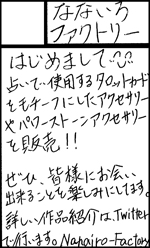 なないろ
ファクトリー
はじめまして
占いで使用するタロットカード
をモチーフにしたアクセサリー
やパワーストーンアクセサリー
を販売!!
ぜひ、皆様にお会い
出来ることを楽しみにしてます。
詳しい作品紹介は、Twitter
で行います。Nanairo-Factory